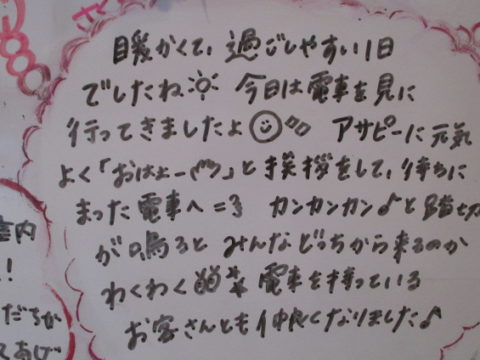 暖かくて、過ごしやすい1日
でしたね☼ 今日は電車を見に
行ってきましたよ☺ アサピーに元気
よく「おはよー(^^)」と挨拶をして、待ちに
まった電車へ=3 カンカンカン♪と踏切
が鳴ると みんなどっちから来るのか
わくわく 電車を待っている
お客さんとも仲良くなりました♪
室内
!
だちが
てあげ